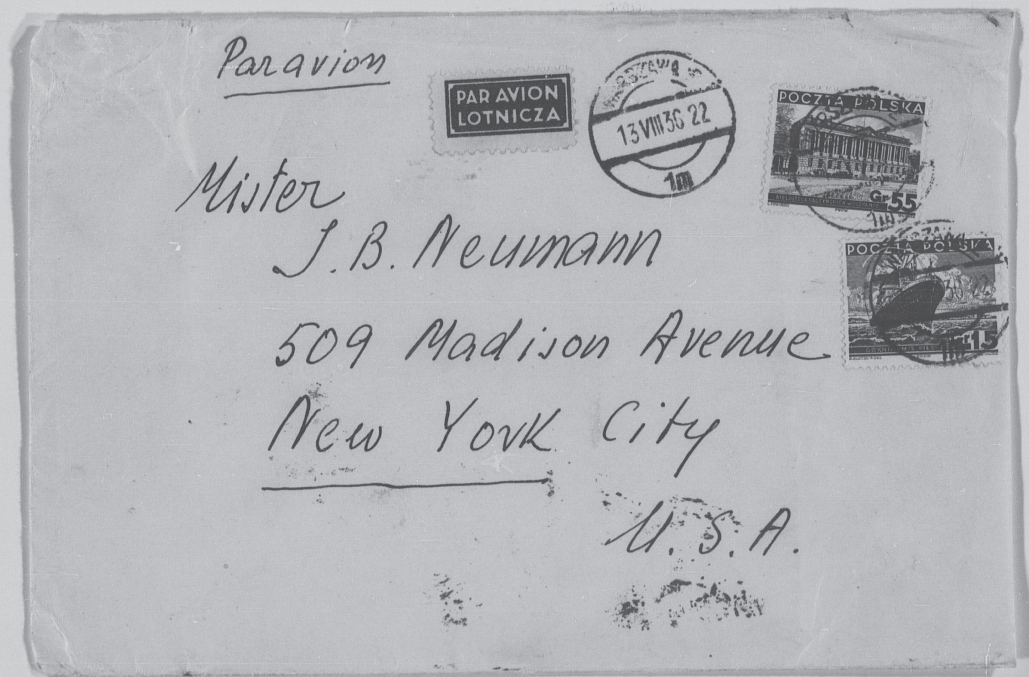 Par avion
PAR AVION
LOTNICZA
WARSZAWA
13 VIII 36 22
1m
POCZTA POLSKA
Gr. 55
POCZTA POLSKA
15
Mister
J. B. Neumann
509 Madison Avenue
New York City
U. S. A.